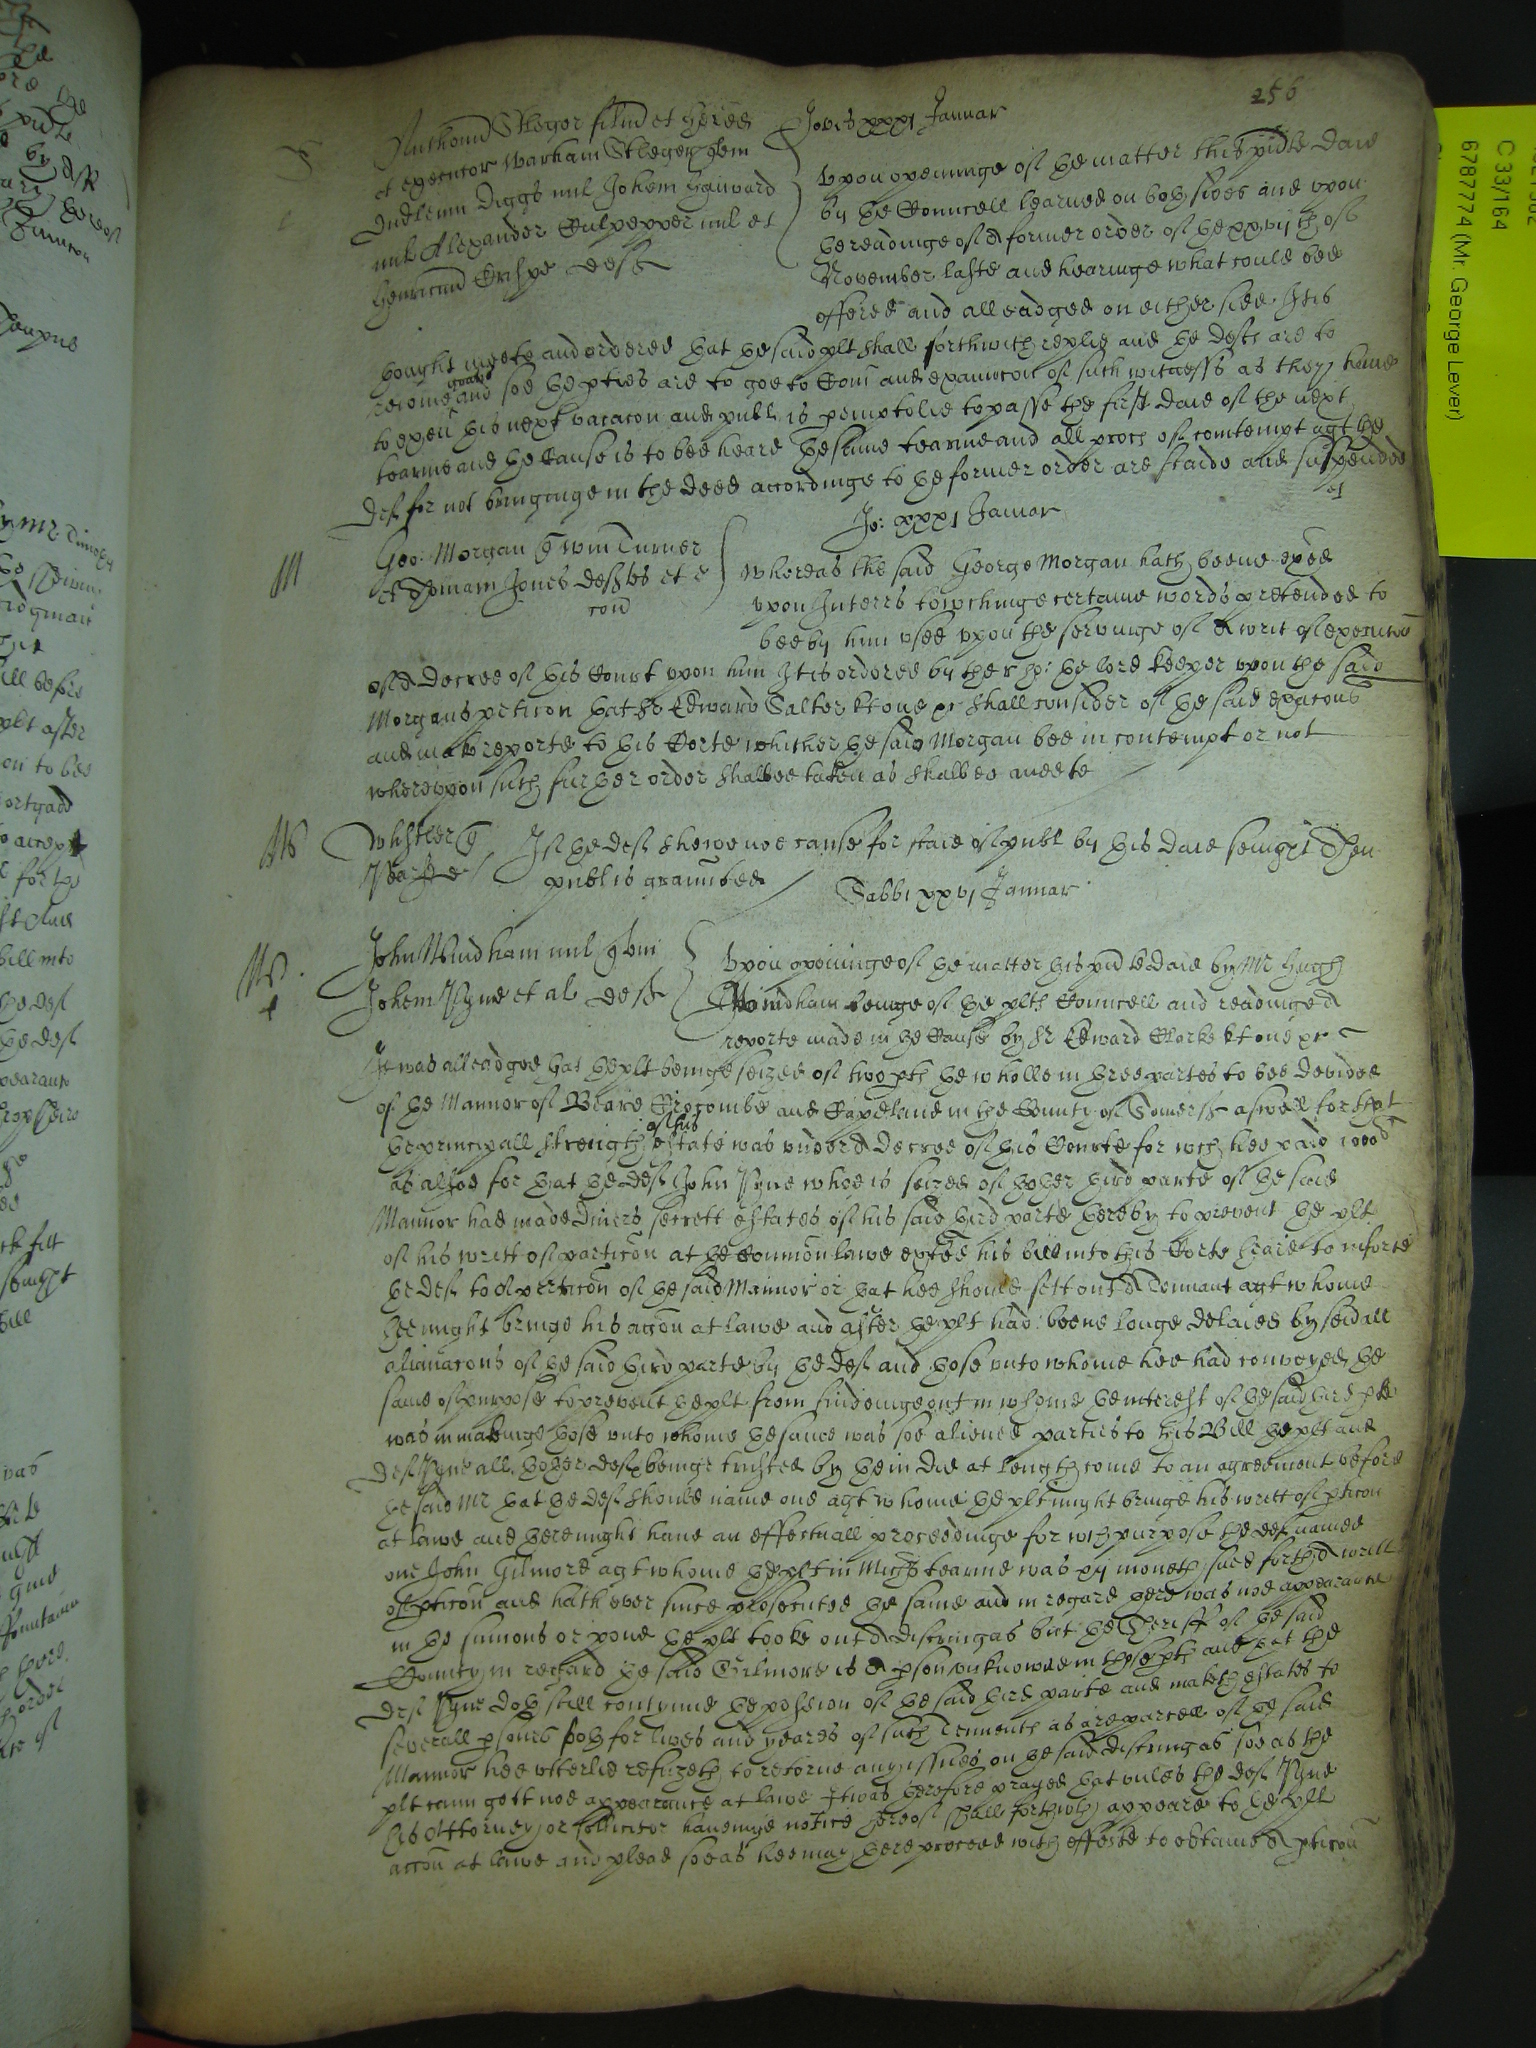 256
Jovis xxxi Januar
Anthoniu Stleger filiu et heres
et executor Warham Stleger quem
Dudleum Diggs mil Johem Haiward
mil Alexander Culpepper mil et
Henricum Crispe defts
Upon openinge of the matter this pnte daie
by the Councell learned on both sides and upon
the readinge of a former order of the xxvijth of
November laste and hearinge what could bee
offered and alleadged on either side It is
thought meete and ordered that the said plt shall forthwith replie and the defts are to
rejoine gratis and soe the pties are to goe to Com and examicon of such witnesses as they have
to exen this next vacacon and publ is pemptorie to passe the first daie of the next
tearme and the Cause is to bee heard the same tearme and all proces of contempt agt the
def for not bringinge in the deed accordinge to the former order are staide and suspended
Jo: xxxi Januar
M
Geo: Morgan q Wm Turner
et Thomam Jones defts et e
con
Whereas the said George Morgan hath beene exed
upon Interrs towchinge certaine words pretended to
bee by him used upon the servinge of a writ of execucon
of a decree of this Court upon him It is ordered by the r ho: the lord keeper upon the said
Morgans peticon that Sr Edward Salter kt one &c shall consider of the said exacons
and make reporte to this Corte whither the said Morgan bee in contempt or not
whereupon such further order shalbee taken as shalbee meete
Whistler q
If the def shewe noe cause for staie of publ by this daie sevnight then
publ is graunted
Sabbi xxvi Januar
John Windham mil quer
Johem Pyne et al defts
Upon openinge of the matter this pnte daie by Mr Hugh
Windham beinge of the plts Councell and readinge a
reporte made in the Cause by Sr Edward Clerke kt one &c
It was alleadged that the plt beinge seized of two pts the whole in three partes to bee devided
of the Mannor of Beare Crocombe and Capeland in the County of Somerst aswell for that
the principall strength of his estate was under a decree of this Courte for wch hee paid 1000l
as alsoe for that the def John Pyne whoe is seized of thother third parte of the said
Mannor had made divers secrett estates of his said third parte thereby to prevent the plt
of his writt of particon at the Common lawe exhted his bill into this Corte praie to inforce
the def to a particon of the said Mannor or that hee should sett out a Tennant agt whome
hee might bringe his accon at lawe and after the plt had beene longe delaied by sevall
alienacons of the said third parte by the def and those unto whome hee had conveyed the
same of purpose to prevent the plt from findeinge out in whome the interest of the said third pte
was in makinge those unto whome the same was soe aliened parties to this Bill the plt and
def Pyne all thother defts beinge trusted by him did at length come to an agreement before
the said Mr that the def should name one agt whome the plt might bringe his writt of pticon
at lawe and there might have an effectuall proceedinge for wch purpose the def named
one John Gilmore agt whome the plt in Michs tearme was xij moneth sued forth a writt
of pticon and hath ever since prosecuted the same and in regard there was noe appearance
in the sumons or pone the plt tooke out a distringas but the Sheriff of the said
County in regard the said Gilmore is a pson unknowne in those pts and that the
def Pyne doth still contynue the possession of the said third parte and maketh estates to
severall psons both for lives and yeares of such Tenements as are parcell of the said
Mannor hee utterlie refuzeth to retorne any issues on the said distringas soe as the
plt cann gett noe appearance at lawe It was therefore prayed that unles the def Pyne
his Attorney or sollicitor haveinge notice thereof shall forthwth appeare to the plts
accon at lawe and plead soe as hee may there proceed with effecte to obtaine a pticon
C 33/164
6787774 (Mr. George Lever)